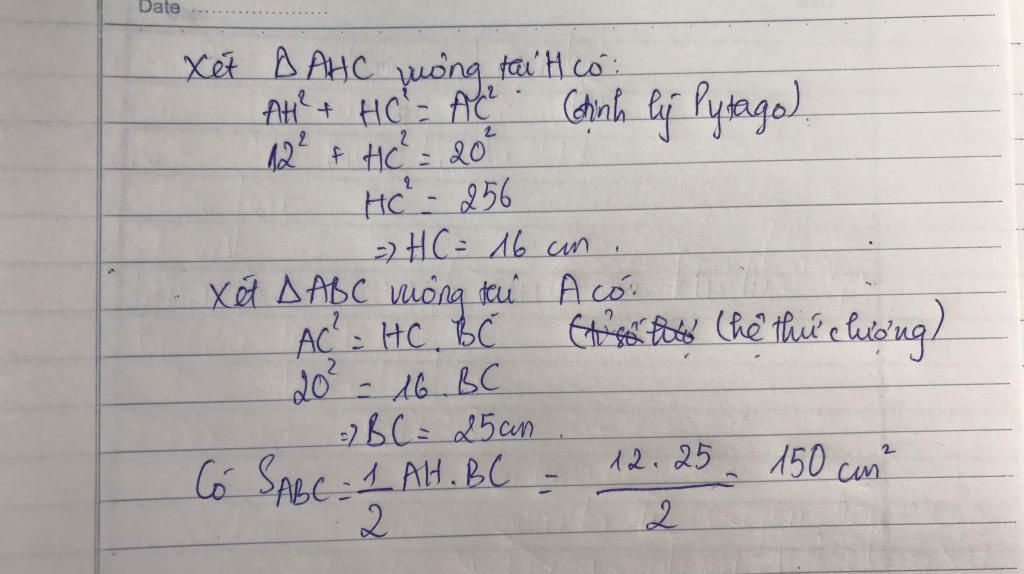 Date
Xét ΔAHC vuông tại H có:
AH² + HC² = AC² (định lý Pytago)
12² + HC² = 20²
HC² = 256
=> HC = 16 cm .
Xét ΔABC vuông tại A có:
AC² = HC . BC (tỉ số (hệ thức lượng)
20² = 16 . BC
=> BC = 25cm .
Có S_ABC = 1/2 AH . BC = 12 . 25/2 = 150 cm²